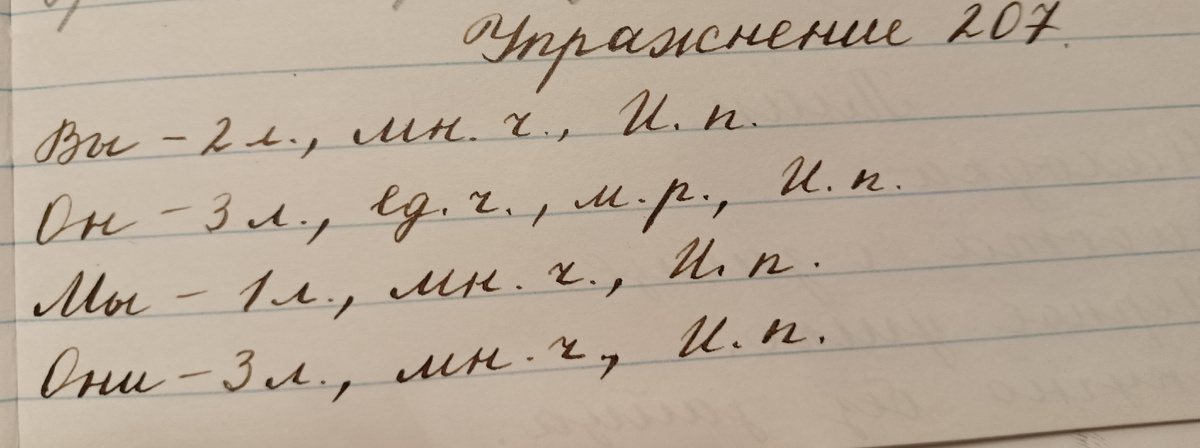 Упражнение 207.
Вы – 2 л., мн. ч., И. п.
Он – 3 л., ед. ч., м. р., И. п.
Мы – 1 л., мн. ч., И. п.
Они – 3 л., мн. ч., И. п.